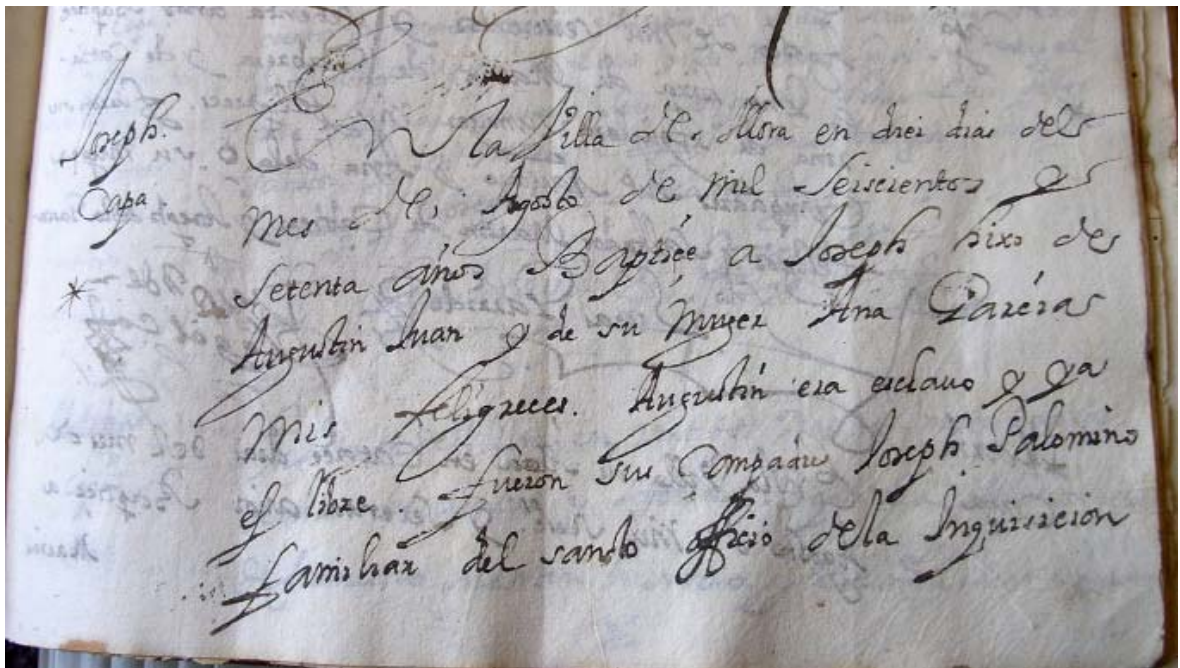 Joseph.
Capa
En la Villa de Illora en diei dias del
mes de Agosto de mil Seiscientos y
setenta años Baptiçe a Joseph hixo de
Augustin Juan y de su muger Ana Pareras
mis feligreces. Augustin era esclavo y ya
es libre. fueron sus Compadres Joseph Palomino
familiar del sancto officio de la Inquisicion